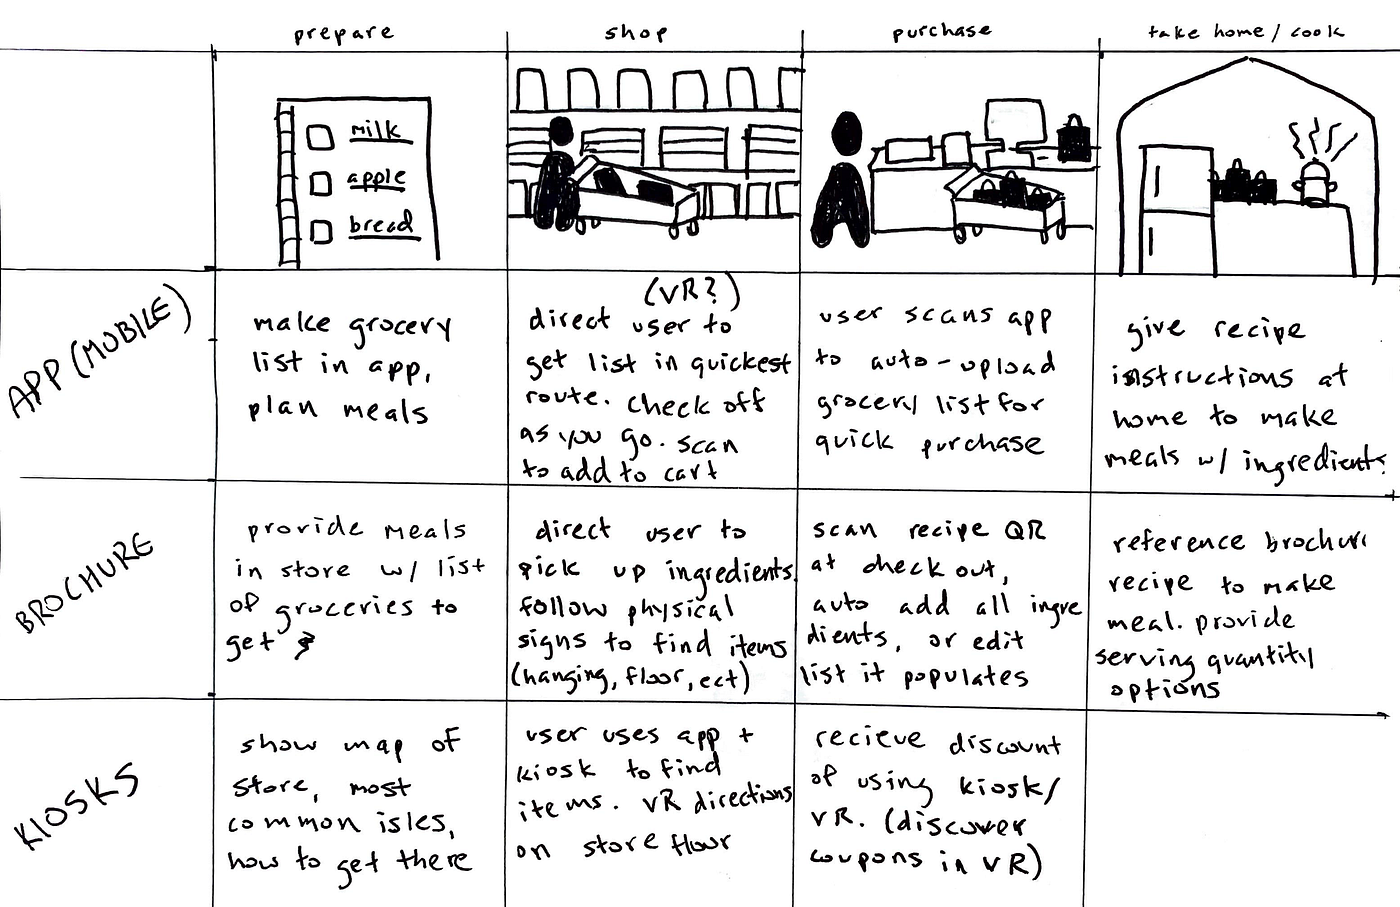 prepare
shop
purchase
take home / cook
milk
apple
bread
APP (MOBILE)
make grocery
list in app,
plan meals
(VR?)
direct user to
get list in quickest
route. check off
as you go. scan
to add to cart
user scans app
to auto-upload
grocery list for
quick purchase
give recipe
instructions at
home to make
meals w/ ingredients
BROCHURE
provide meals
in store w/ list
of groceries to
get
direct user to
pick up ingredients
follow physical
signs to find items
(hanging, floor, ect)
scan recipe QR
at check out,
auto add all ingre
dients, or edit
list it populates
reference brochure
recipe to make
meal. provide
serving quantity
options
KIOSKS
show map of
store, most
common isles,
how to get there
user uses app +
kiosk to find
items. VR directions
on store flour
recieve discount
of using kiosk/
VR. (discover
coupons in VR)